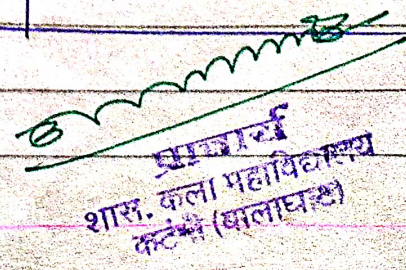 प्राचार्य
शास. कला महाविद्यालय
कटंगी (बालाघाट)